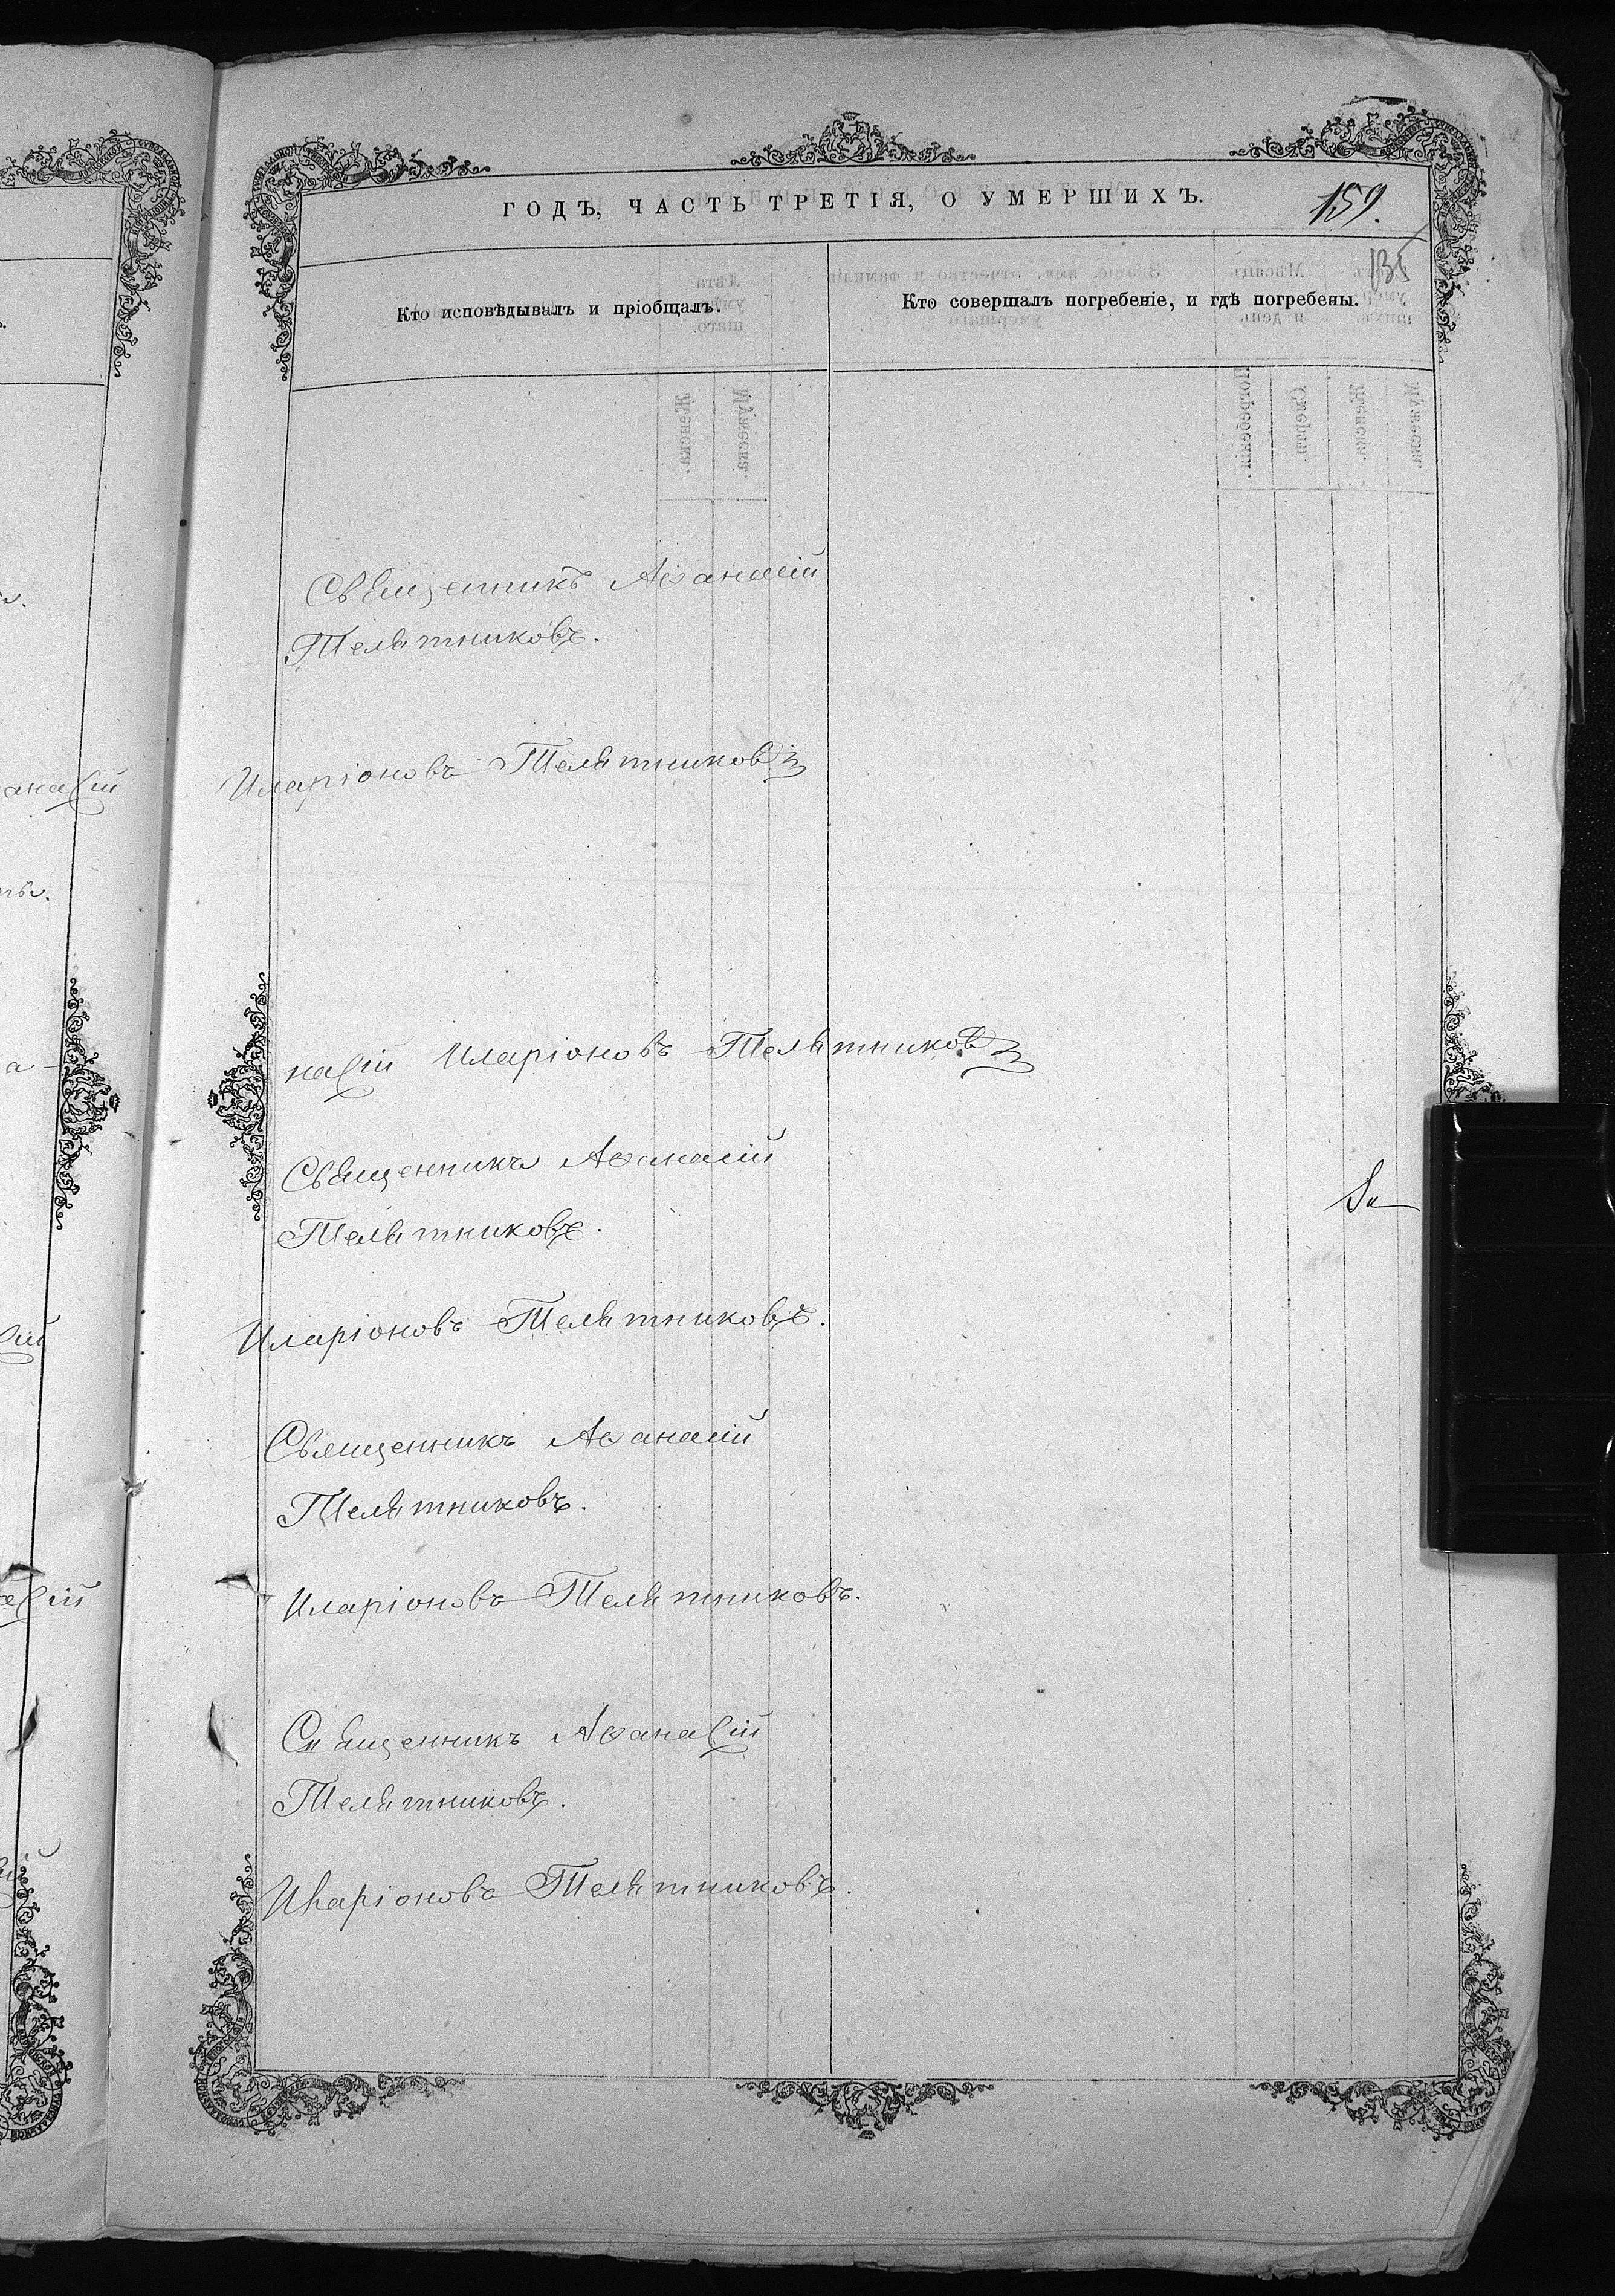 ГОДЪ, ЧАСТЬ ТРЕТІЯ, О УМЕРШИХЪ.
159.
135
Кто исповѣдывалъ и пріобщалъ.
Кто совершалъ погребеніе, и гдѣ погребены.
Священникъ Аѳанасій
Телятниковъ.
Иларіоновъ Телятниковъ
насій Иларіоновъ Телятниковъ
Священникъ Аѳанасій
Телятниковъ.
Иларіоновъ Телятниковъ.
Священникъ Аѳанасій
Телятниковъ.
Иларіоновъ Телятниковъ.
Священникъ Аѳанасій
Телятниковъ.
Иларіоновъ Телятниковъ.